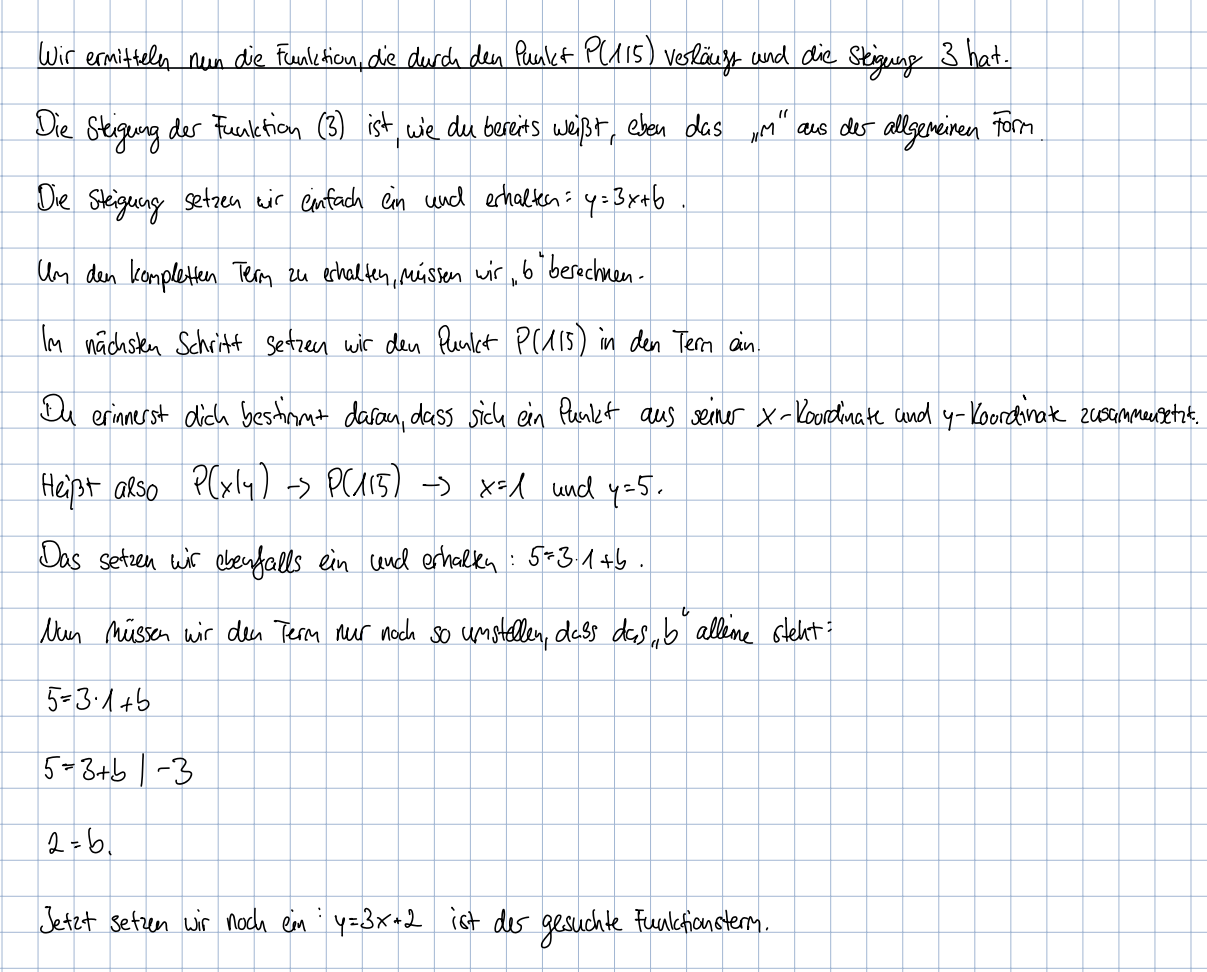 Wir ermitteln nun die Funktion, die durch den Punkt P(1|5) verläuft und die Steigung 3 hat.
Die Steigung der Funktion (3) ist, wie du bereits weißt, eben das „m“ aus der allgemeinen Form.
Die Steigung setzen wir einfach ein und erhalten: y=3x+b.
Um den kompletten Term zu erhalten, müssen wir „b“ berechnen.
Im nächsten Schritt setzen wir den Punkt P(1|5) in den Term ein.
Du erinnerst dich bestimmt daran, dass sich ein Punkt aus seiner x-Koordinate und y-Koordinate zusammensetzt.
Heißt also P(x|y) -> P(1|5) -> x=1 und y=5.
Das setzen wir ebenfalls ein und erhalten: 5=3·1+b.
Nun müssen wir den Term nur noch so umstellen, dass das „b“ alleine steht:
5=3·1+b
5=3+b | -3
2=b.
Jetzt setzen wir noch ein: y=3x+2 ist der gesuchte Funktionsterm.